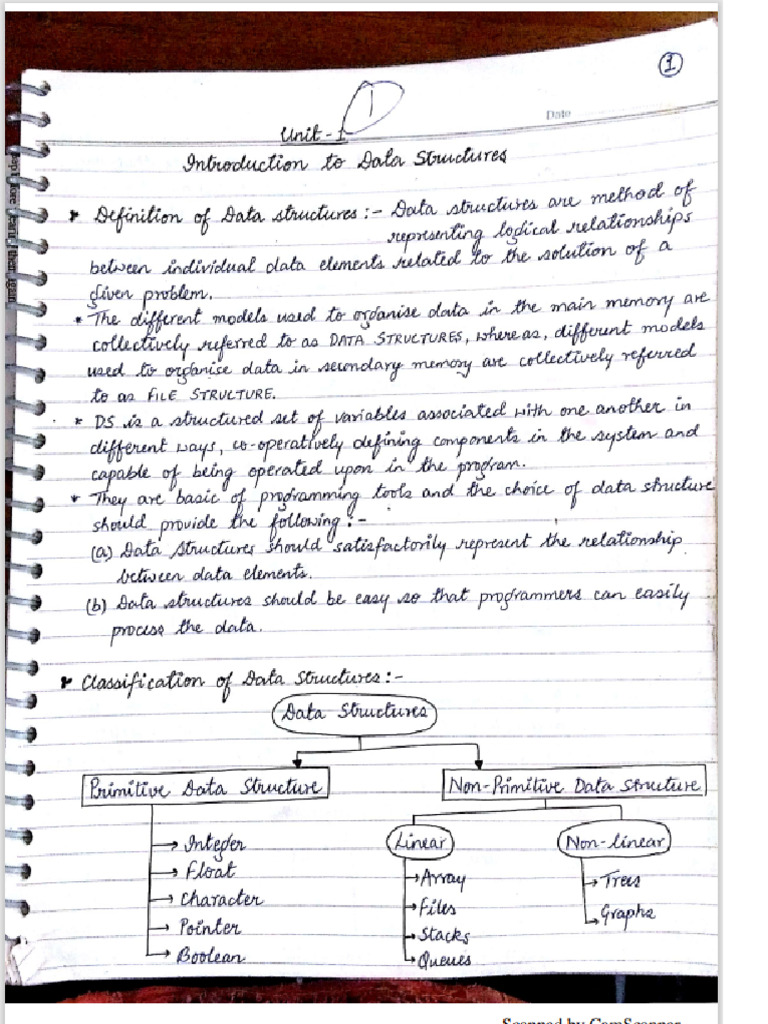 1
1
Date
Unit - 1
Introduction to Data Structures
* Definition of Data structures :- Data structures are method of
representing logical relationships
between individual data elements related to the solution of a
given problem.
* The different models used to organise data in the main memory are
collectively referred to as DATA STRUCTURES, whereas, different models
used to organise data in secondary memory are collectively referred
to as FILE STRUCTURE.
* DS is a structured set of variables associated with one another in
different ways, co-operatively defining components in the system and
capable of being operated upon in the program.
* They are basic of programming tools and the choice of data structure
should provide the following :-
(a) Data Structures should satisfactorily represent the relationship
between data elements.
(b) Data structures should be easy so that programmers can easily
process the data.
* Classification of Data Structures :-
Data Structures
Primitive Data Structure
Non-Primitive Data Structure
Integer
Float
Character
Pointer
Boolean
Linear
Array
Files
Stacks
Queues
Non-linear
Trees
Graphs